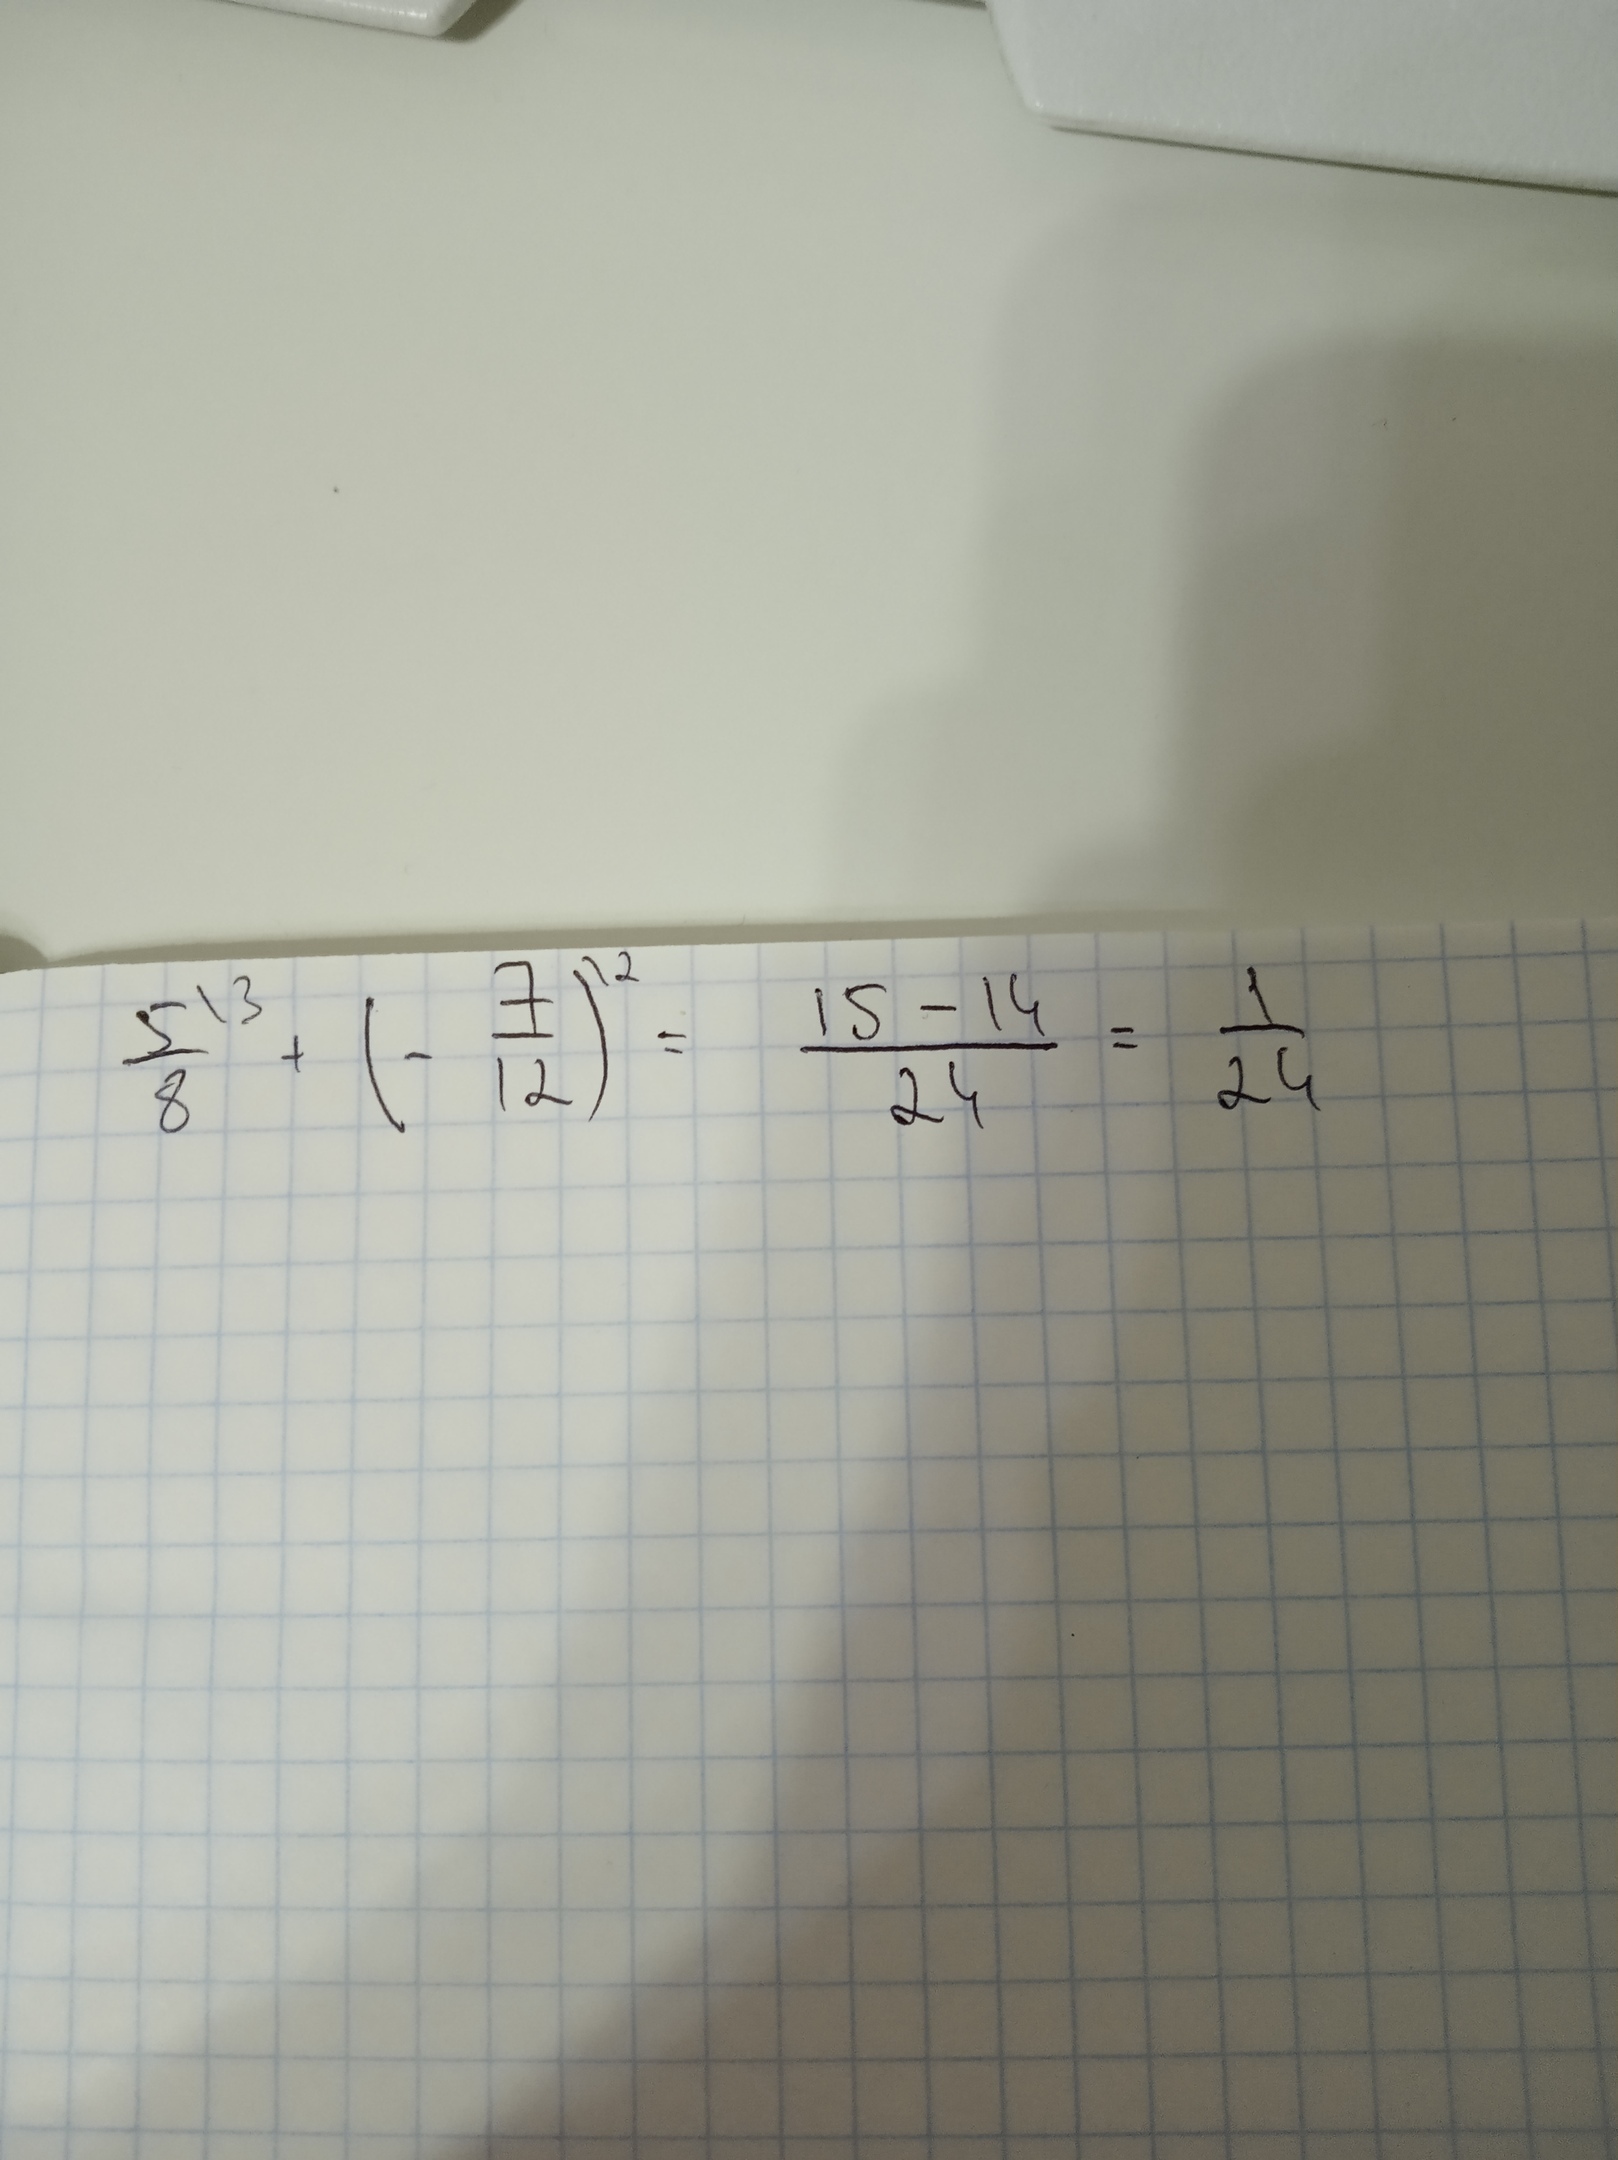 5\3/8 + (- 7/12)\2 = 15-14/24 = 1/24